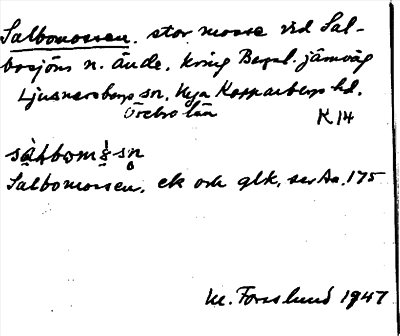 Salbomossen. stor mosse vid Sal-
bosjöns n. ände, kring Bergsl. järnväg
Ljusnarsbergs sn, Nya Kopparbergs hd.
Örebro län K 14
Salbomossen. ek och glk, 175
M. Forsslund 1947